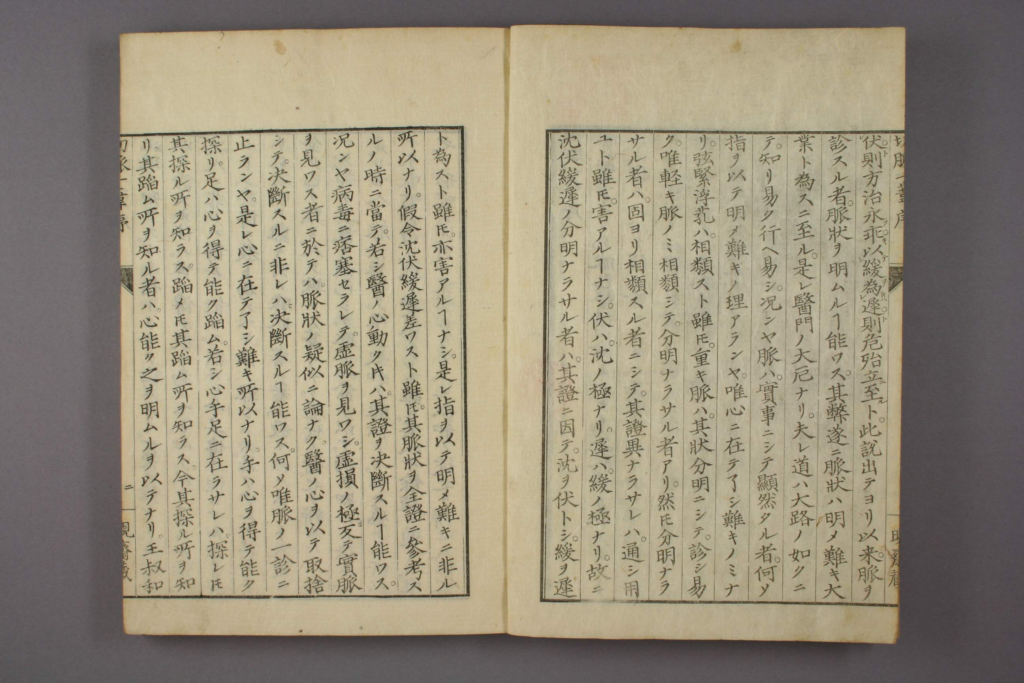 伏則方治永乖以緩為遲則危殆立至ト此説出テヨリ以来脈ヲ
診スル者脈狀ヲ明ムルヿ能ワス其弊遂ニ脈狀ハ明メ難キ大
業ト為スニ至ル是レ醫門ノ大厄ナリ夫レ道ハ大路ノ如クニ
テ知リ易ク行ヘ易シ况ンヤ脈ハ實事ニシテ顯然タル者何ソ
指ヲ以テ明メ難キノ理アランヤ唯心ニ在テ了シ難キノミナ
リ弦緊浮芤ハ相類スト雖𪜈重キ脈ハ其狀分明ニシテ診シ易
ク唯軽キ脈ノミ相類シテ分明ナラサル者アリ然𪜈分明ナラ
サル者ハ固ヨリ相類スル者ニシテ其證異ナラサレハ通シ用
ユト雖𪜈害アルヿナシ伏ハ沈ノ極ナリ遲ハ緩ノ極ナリ故ニ
沈伏緩遲ノ分明ナラサル者ハ其證ニ因テ沈ヲ伏トシ緩ヲ遲
ト為スト雖𪜈亦害アルヿナシ是レ指ヲ以テ明メ難キニ非ル
所以ナリ假令沈伏緩遲差ワスト雖𪜈其脈狀ヲ全證ニ參考ス
ルノ時ニ當テ若シ醫ノ心動ク𪜈ハ其證ヲ决斷スルヿ能ワス
况ンヤ病毒ニ痞塞セラレテ虚脈ヲ見ワシ虚損ノ極反テ實脈
ヲ見ワス者ニ於テハ脈狀ノ疑似ニ論ナク醫ノ心ヲ以テ取捨
シテ决斷スルニ非レハ决斷スルヿ能ワス何ソ唯脈ノ一診ニ
止ランヤ是レ心ニ在テ了シ難キ所以ナリ手ハ心ヲ得テ能ク
探リ足ハ心ヲ得テ能ク蹈ム若シ心手足ニ在ラサレハ探レ𪜈
其探ル所ヲ知ラス蹈メ𪜈其蹈ム所ヲ知ラス今其探ル所ヲ知
リ其蹈ム所ヲ知ル者ハ心能ク之ヲ明ムルヲ以テナリ王叔和
切脈一葦序
二